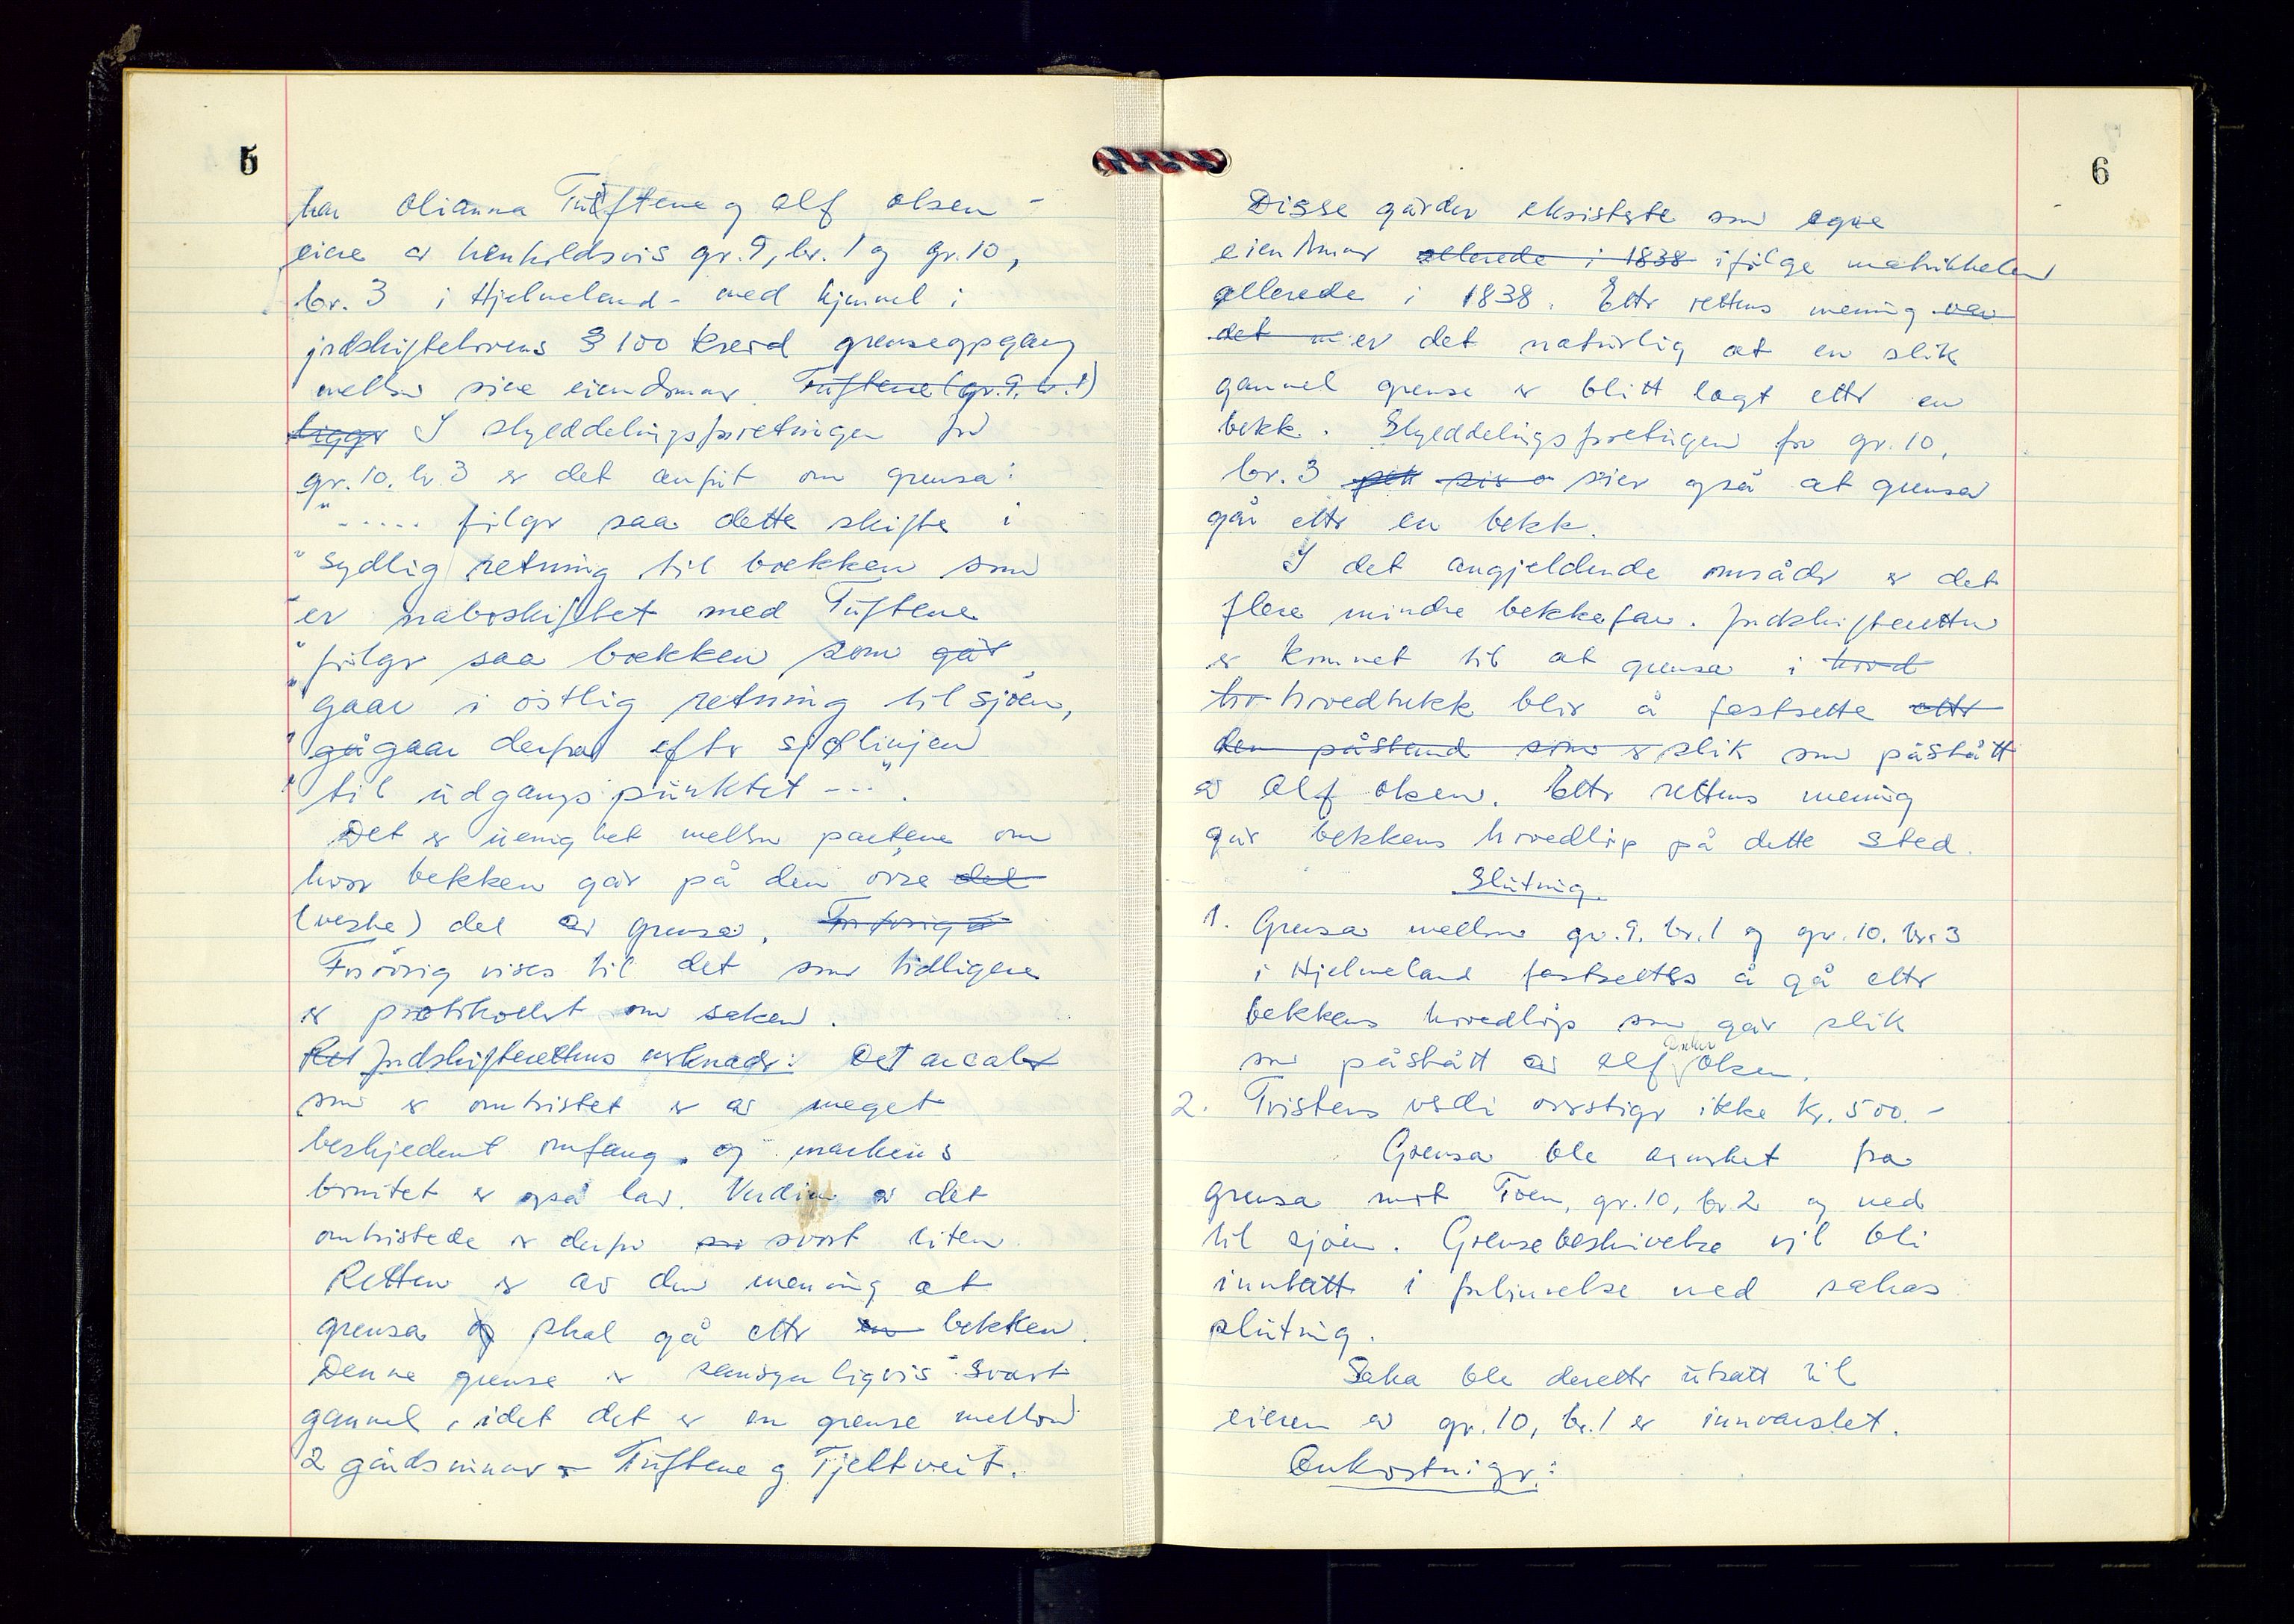 5
har Olianna Tuftene og Alf Olsen -
eiere av henholdsvis gr. 9, br. 1 og gr. 10,
br. 3 i Hjelmeland - med hjemmel i
jordskiftelovens § 100 krevd grenseoppgang
mellom sine eiendommer. Tuftene (gr. 9. br. 1)
ligger I skylddelingsforretningen for
gr. 10. br. 3 er det anført om grensa:
"..... følger saa dette skifte i
"sydlig retning til bækken som
"er naboskiftet med Tuftene
"følger saa bækken som går
"gaar i østlig retning til sjøen,
"gå gaar derfra efter sjølinjen
"til udgangspunktet ---".
Det er uenighet mellom partene om
hvor bekken går på den øvre del
(vestre) del av grensa. Forøvrig
Forøvrig vises til det som tidligere
er protokollert om saken.
Ret Jordskifterettens merknader: Det arealet
som er omtvistet er av meget
beskjedent omfang, og markens
bonitet er også lav. Verdien av det
omtvistede er derfor svært liten.
Retten er av den mening at
grensa skal gå etter en bekken.
Denne grense er sansynligvis svært
gammel, idet det er en grense mellom
2 gårdsnummer - Tuftene og Tjeltveit.
6
Disse gårder eksisterte som egne
eiendommer allerede i 1838 ifølge matrikkelen
allerede i 1838. Etter rettens mening var
det er det naturlig at en slik
gammel grense er blitt lagt etter en
bekk. Skylddelingsforretningen for gr. 10,
br. 3 sier også at grensa
går etter en bekk.
I det angjeldende område er det
flere mindre bekkefar. Jordskifteretten
er kommet til at grensa i hovd
ho hovedtrekk blir å fastsette etter
den påstand som er slik som påstått
av Alf Olsen. Etter rettens mening
går bekkens hovedløp på dette sted.
Slutning.
1. Grensa mellom gr. 9. br. 1 og gr. 10. br. 3
i Hjelmeland fastsettes å gå etter
bekkens hovedløp som går slik
som påstått av Alf Olsen.
2. Tvistens verdi overstiger ikke kr. 500.-
Grensa ble avmerket fra
grensa mot Toen, gr. 10, br. 2 og ned
til sjøen. Grensebeskrivelse vil bli
inntatt i forbinnelse med sakas
slutning.
Saka ble deretter utsatt til
eieren av gr. 10, br. 1 er innvarslet.
Omkostninger: